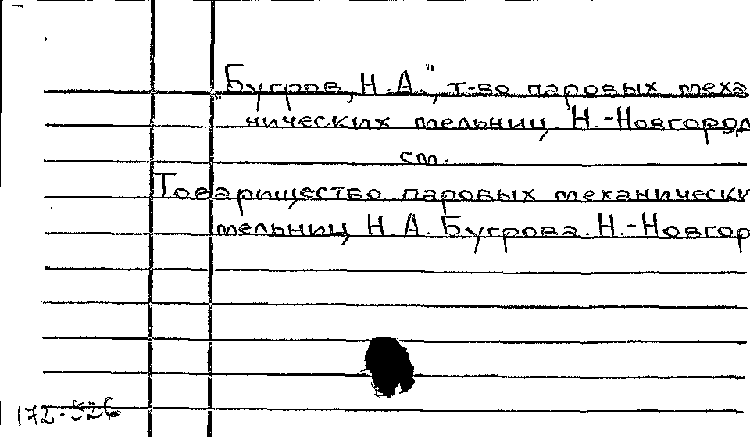 "Бугров, Н.А.", т-во паровых меха
нических мельниц, Н.-Новгород
см.
Товарищество паровых механически
мельниц Н.А. Бугрова. Н.-Новгор
172-526